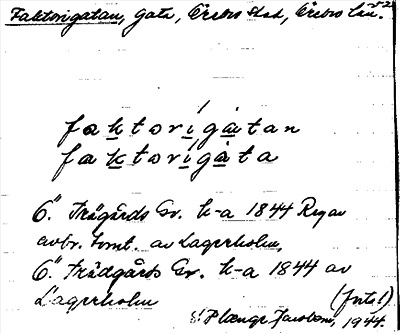 Faktorigatan, Gata, Örebro stad, Örebro län.
faktorígàtan
faktorígàta
6" Trägårds Gr. k-a 1844 Reg av
avbr. tomt. av Lagerholm,
6" Trädgårds Gr. k-a 1844 av
Lagerholm (forts!)
Jacobson, 1944.